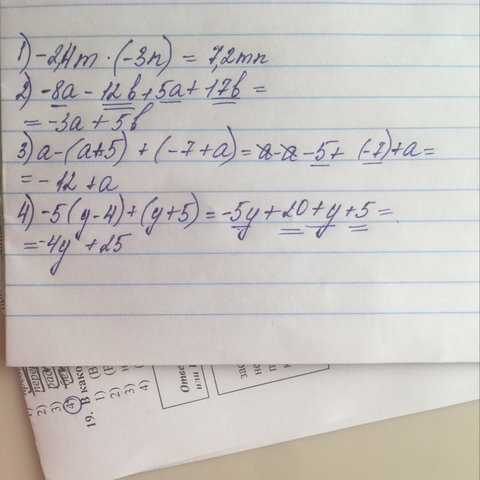 1) -2,4m · (-3n) = 7,2mn
2) -8a - 12b + 5a + 17b =
= -3a + 5b
3) a - (a+5) + (-7+a) = a - a - 5 + (-7) + a =
= -12 + a
4) -5(y-4) + (y+5) = -5y + 20 + y + 5 =
= -4y + 25
19. В како
1) (В
2) (
3)
4)
2)
3)
4)
Отве
или